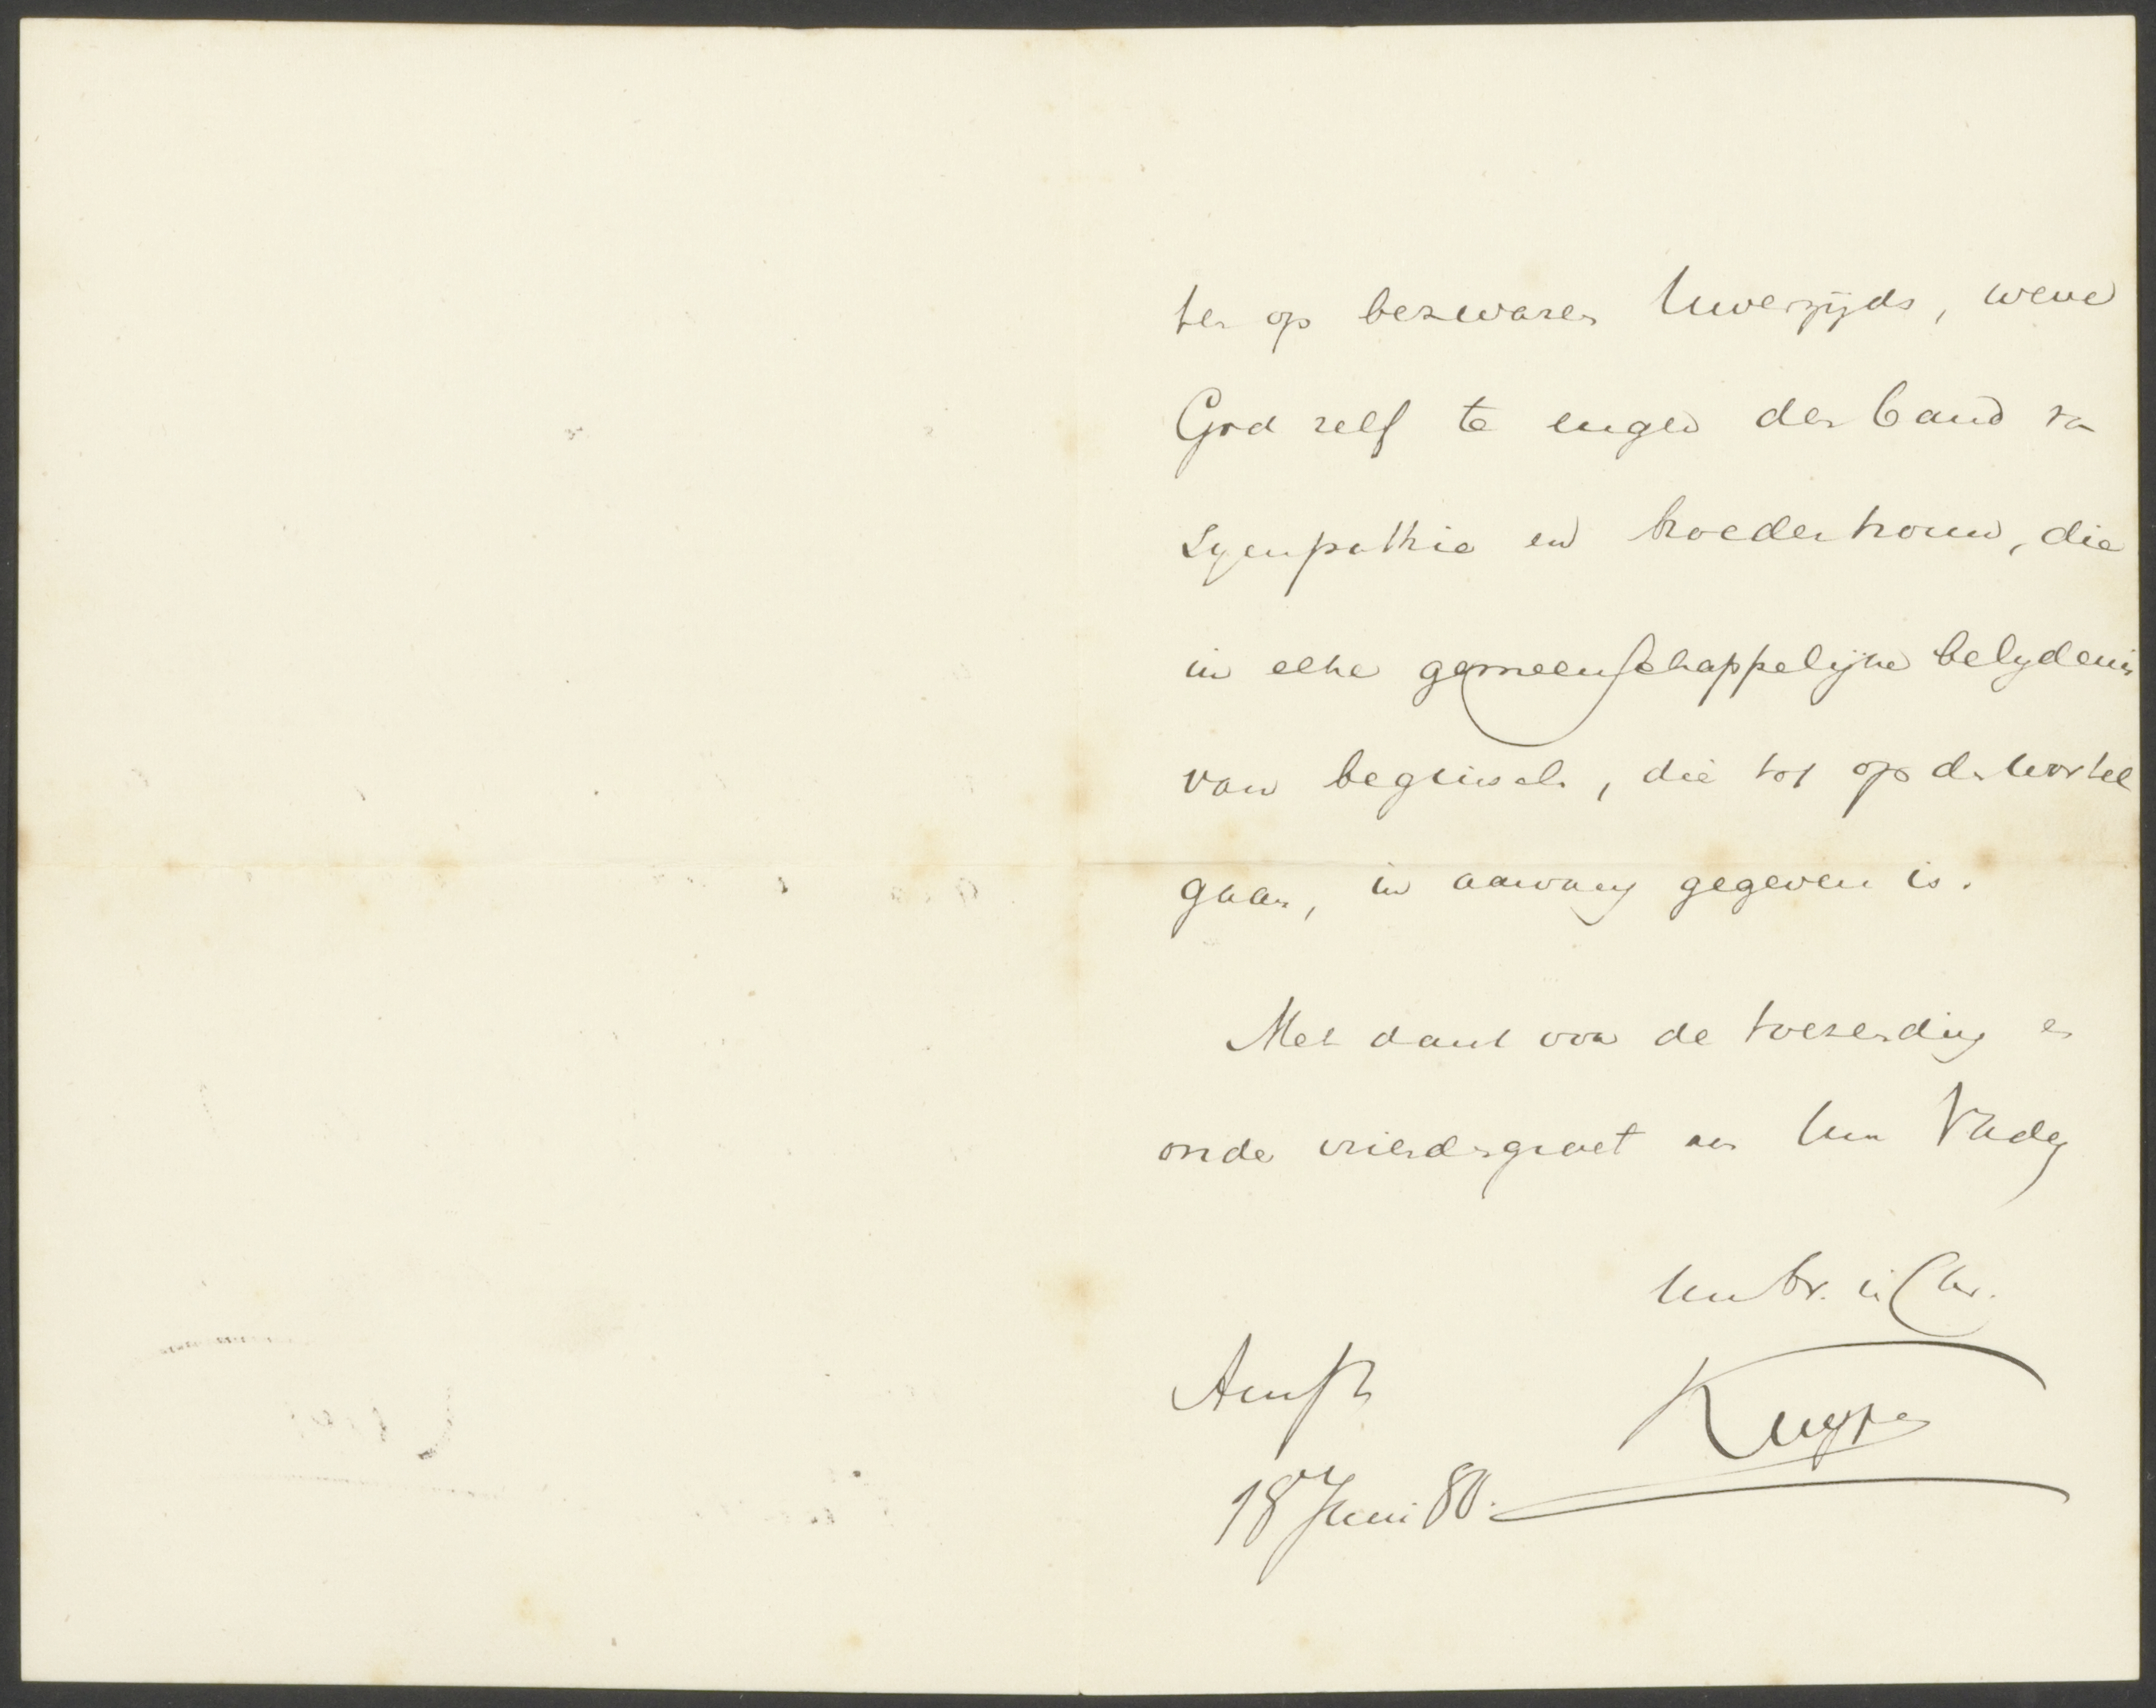 ten op bezwaren Uwerzijds, weve
God zelf te enger den band van
sympathie en broedertrouw, die
in elke gemeenschappelijke belydenis
van beginsels, die tot op den wortel
gaan, in aanvang gegeven is.
Met dank voor de toezending en
onde vriendsgroet aan Uw Vader
Uw br. in Chr.
Kuyper
Amst
18 Juni 80.